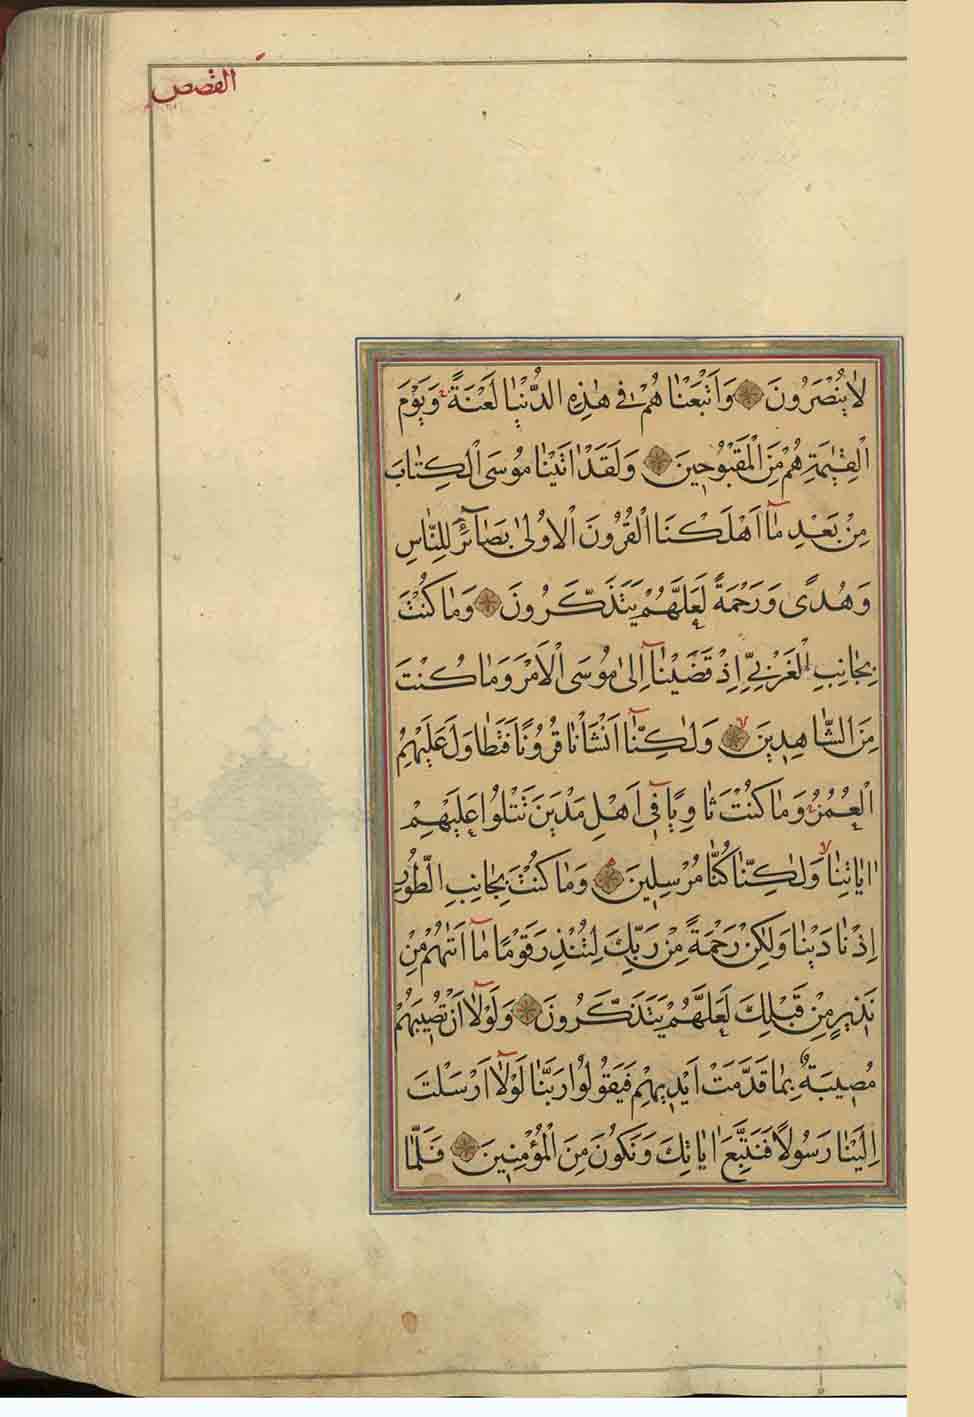 القصص
لَا يُنْصَرُونَ وَاَتْبَعْنَا هُمْ فِى هٰذِهِ الدُّنْيَا لَعْنَةً وَيَوْمَ
الْقِيٰمَةِ هُمْ مِنَ الْمَقْبُوحِينَ وَلَقَدْ اٰتَيْنَا مُوسَى الْكِتَابَ
مِنْ بَعْدِ مَآ اَهْلَكْنَا الْقُرُونَ الْاُولٰى بَصَآئِرَ لِلنَّاسِ
وَهُدًى وَرَحْمَةً لَعَلَّهُمْ يَتَذَكَّرُونَ وَمَا كُنْتَ
بِجَانِبِ الْغَرْبِىِّ اِذْ قَضَيْنَآ اِلٰى مُوسَى الْاَمْرَ وَمَا كُنْتَ
مِنَ الشَّاهِدِينَ وَلٰكِنَّآ اَنْشَأْنَا قُرُونًا فَتَطَاوَلَ عَلَيْهِمُ
الْعُمُرُ وَمَا كُنْتَ ثَاوِيًا فِىٓ اَهْلِ مَدْيَنَ تَتْلُوا عَلَيْهِمْ
اٰيَاتِنَا وَلٰكِنَّا كُنَّا مُرْسِلِينَ وَمَا كُنْتَ بِجَانِبِ الطُّورِ
اِذْ نَادَيْنَا وَلٰكِنْ رَحْمَةً مِنْ رَبِّكَ لِتُنْذِرَ قَوْمًا مَآ اَتٰيهُمْ مِنْ
نَذِيرٍ مِنْ قَبْلِكَ لَعَلَّهُمْ يَتَذَكَّرُونَ وَلَوْلَآ اَنْ تُصِيبَهُمْ
مُصِيبَةٌ بِمَا قَدَّمَتْ اَيْدِيهِمْ فَيَقُولُوا رَبَّنَا لَوْلَآ اَرْسَلْتَ
اِلَيْنَا رَسُولًا فَنَتَّبِعَ اٰيَاتِكَ وَنَكُونَ مِنَ الْمُؤْمِنِينَ فَلَمَّا